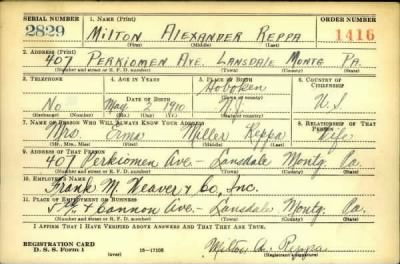 SERIAL NUMBER 1. NAME (Print) ORDER NUMBER
2829 MILTON ALEXANDER REPPA 1416
(First) (Middle) (Last)
2. ADDRESS (Print)
407 PERKIOMEN AVE. LANSDALE MONTG PA.
(Number and street or R. F. D. number) (Town) (County) (State)
3. TELEPHONE 4. AGE IN YEARS 5. PLACE OF BIRTH 6. COUNTRY OF CITIZENSHIP
Hoboken
No DATE OF BIRTH (Town or county)
May 3 1910 N.J. U.S.
(Mo.) (Day) (Yr.) (State or country)
7. NAME OF PERSON WHO WILL ALWAYS KNOW YOUR ADDRESS 8. RELATIONSHIP OF THAT PERSON
Mrs. Erma Miller Reppa Wife
(Mr., Mrs., Miss) (First) (Middle) (Last)
9. ADDRESS OF THAT PERSON
407 Perkiomen Ave. - Lansdale Montg. Pa.
(Number and street or R. F. D. number) (Town) (County) (State)
10. EMPLOYER'S NAME
Frank M. Weaver & Co, Inc.
11. PLACE OF EMPLOYMENT OR BUSINESS
5th & Cannon Ave. - Lansdale Montg. Pa.
(Number and street or R. F. D. number) (Town) (County) (State)
I AFFIRM THAT I HAVE VERIFIED ABOVE ANSWERS AND THAT THEY ARE TRUE.
REGISTRATION CARD
D. S. S. Form 1 (over) 16-17105 Milton A. Reppa